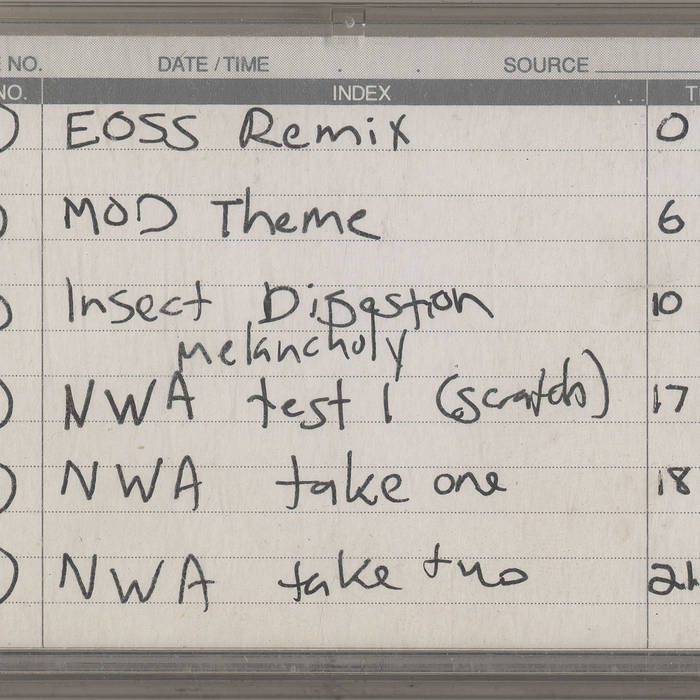 E NO. DATE / TIME . . SOURCE
NO. INDEX T
EOSS Remix 0
MOD Theme 6
Insect Digestion 10
melancholy
NWA test 1 (scratch) 17
NWA take one 18
NWA take two 21